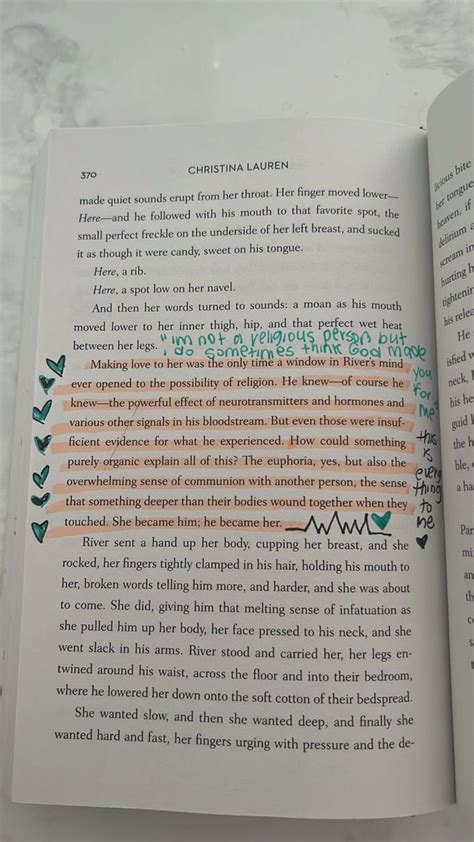 370
CHRISTINA LAUREN
made quiet sounds erupt from her throat. Her finger moved lower—
Here—and he followed with his mouth to that favorite spot, the
small perfect freckle on the underside of her left breast, and sucked
it as though it were candy, sweet on his tongue.
Here, a rib.
Here, a spot low on her navel.
And then her words turned to sounds: a moan as his mouth
moved lower to her inner thigh, hip, and that perfect wet heat
between her legs.
"im not a religious person but
i do sometimes think God made
you
for
me"
Making love to her was the only time a window in River's mind
ever opened to the possibility of religion. He knew—of course he
knew—the powerful effect of neurotransmitters and hormones and
various other signals in his bloodstream. But even those were insuf-
ficient evidence for what he experienced. How could something
purely organic explain all of this? The euphoria, yes, but also the
overwhelming sense of communion with another person, the sense
that something deeper than their bodies wound together when they
touched. She became him; he became her.
this
is
every
thing
to
me
River sent a hand up her body, cupping her breast, and she
rocked, her fingers tightly clamped in his hair, holding his mouth to
her, broken words telling him more, and harder, and she was about
to come. She did, giving him that melting sense of infatuation as
she pulled him up her body, her face pressed to his neck, and she
went slack in his arms. River stood and carried her, her legs en-
twined around his waist, across the floor and into their bedroom,
where he lowered her down onto the soft cotton of their bedspread.
She wanted slow, and then she wanted deep, and finally she
wanted hard and fast, her fingers urging with pressure and the de-
licious bite
her tongue
heaven, if
delirium
scream in
hurting h
tightenin
his relea
He
isfied w
neck.
his he
guid l
the
ble,
a ha
Par
mi
an
th